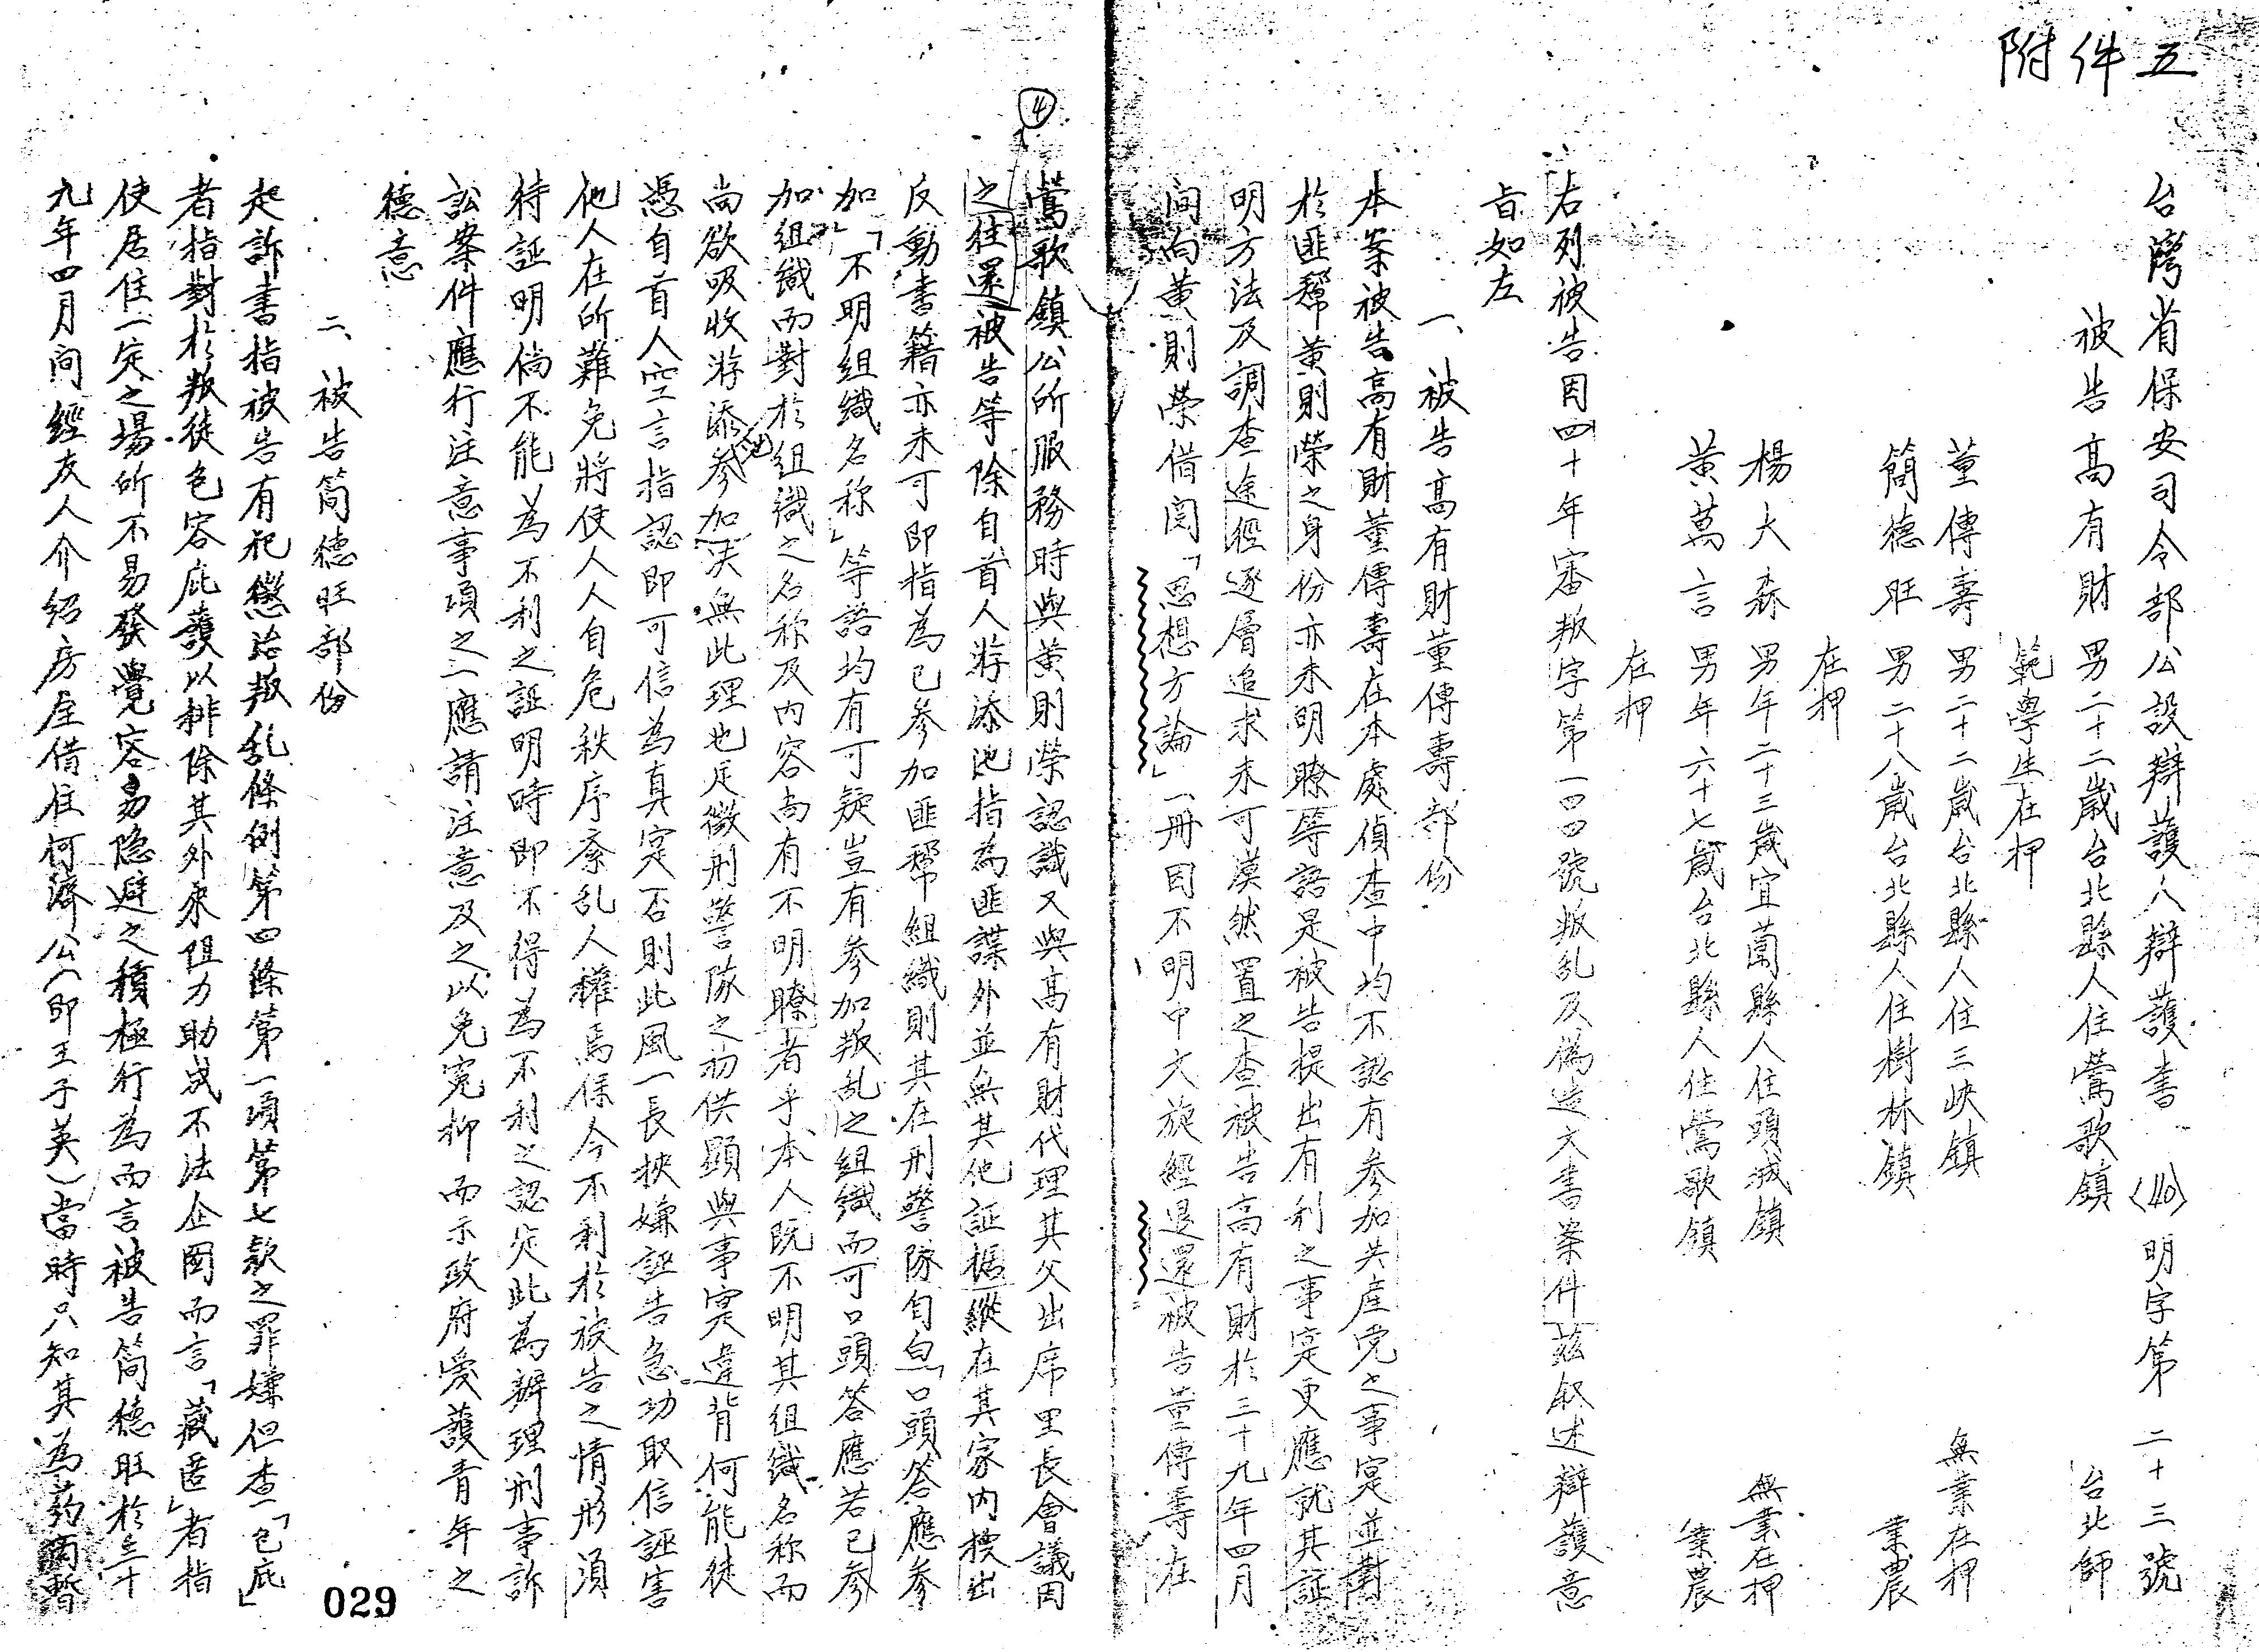 附件五
台灣省保安司令部公設辯護人辯護書 (40)明字第二十三號
被告高有財 男二十二歲台北縣人住鶯歌鎮 台北師
範學生在押
董傳壽 男二十二歲台北縣人住三峽鎮 無業在押
簡德旺 男二十八歲台北縣人住樹林鎮 業農
在押
楊大森 男年二十三歲宜蘭縣人住頭城鎮 無業在押
黃萬言 男年六十七歲台北縣人住鶯歌鎮 業農
在押
右列被告因四十年審叛字第一四四號叛乱及偽造文書案件茲叙述辯護意
旨如左
一、被告高有財董傳壽部份
本案被告高有財董傳壽在本處偵查中均不認有參加共產党之事寔並對
於匪幫黃則榮之身份亦未明瞭等語是被告提出有利之事寔更應就其証
明方法及調查途徑逐層追求未可漠然置之查被告高有財於三十九年四月
间向黃則榮借閱「思想方論」一冊因不明中文旋經退還被告董傳壽在
④
鶯歌鎮公所服務時與黃則榮認識又與高有財代理其父出席里長會議因
之往還被告等除自首人游添池指為匪諜外並無其他証据縱在其家內搜出
反動書籍亦未可即指為已參加匪幫組織則其在刑警隊自白「口頭答應參
加」「不明組織名称」等語均有可疑豈有參加叛乱之組織而可口頭答應若已參
加組織而對於組織之名称及內容尚有不明瞭者乎本人既不明其組織名称而
尚欲吸收游添池參加决無此理也足徵刑警隊之初供顯與事寔違背何能徒
憑自首人空言指認即可信為真寔否則此風一長挾嫌誣告急功取信誣害
他人在所難免將使人人自危秩序紊乱人權焉保今不利於被告之情形須
待証明倘不能為不利之証明時即不得為不利之認定此為辦理刑事訴
訟案件應行注意事項之一應請注意及之以免寃抑而示政府愛護青年之
德意
二、被告简德旺部份
起訴書指被告有犯懲治叛乱條例第四條第一項第七款之罪嫌但查「包庇」
者指對於叛徒包容庇護以排除其外來阻力助成不法企圖而言「藏匿」者指
使居住一定之場所不易發覺容易隐避之積極行為而言被告简德旺於三十
九年四月间經友人介紹房屋借住何濟公(即王子英)當時只知其為药商暫
029